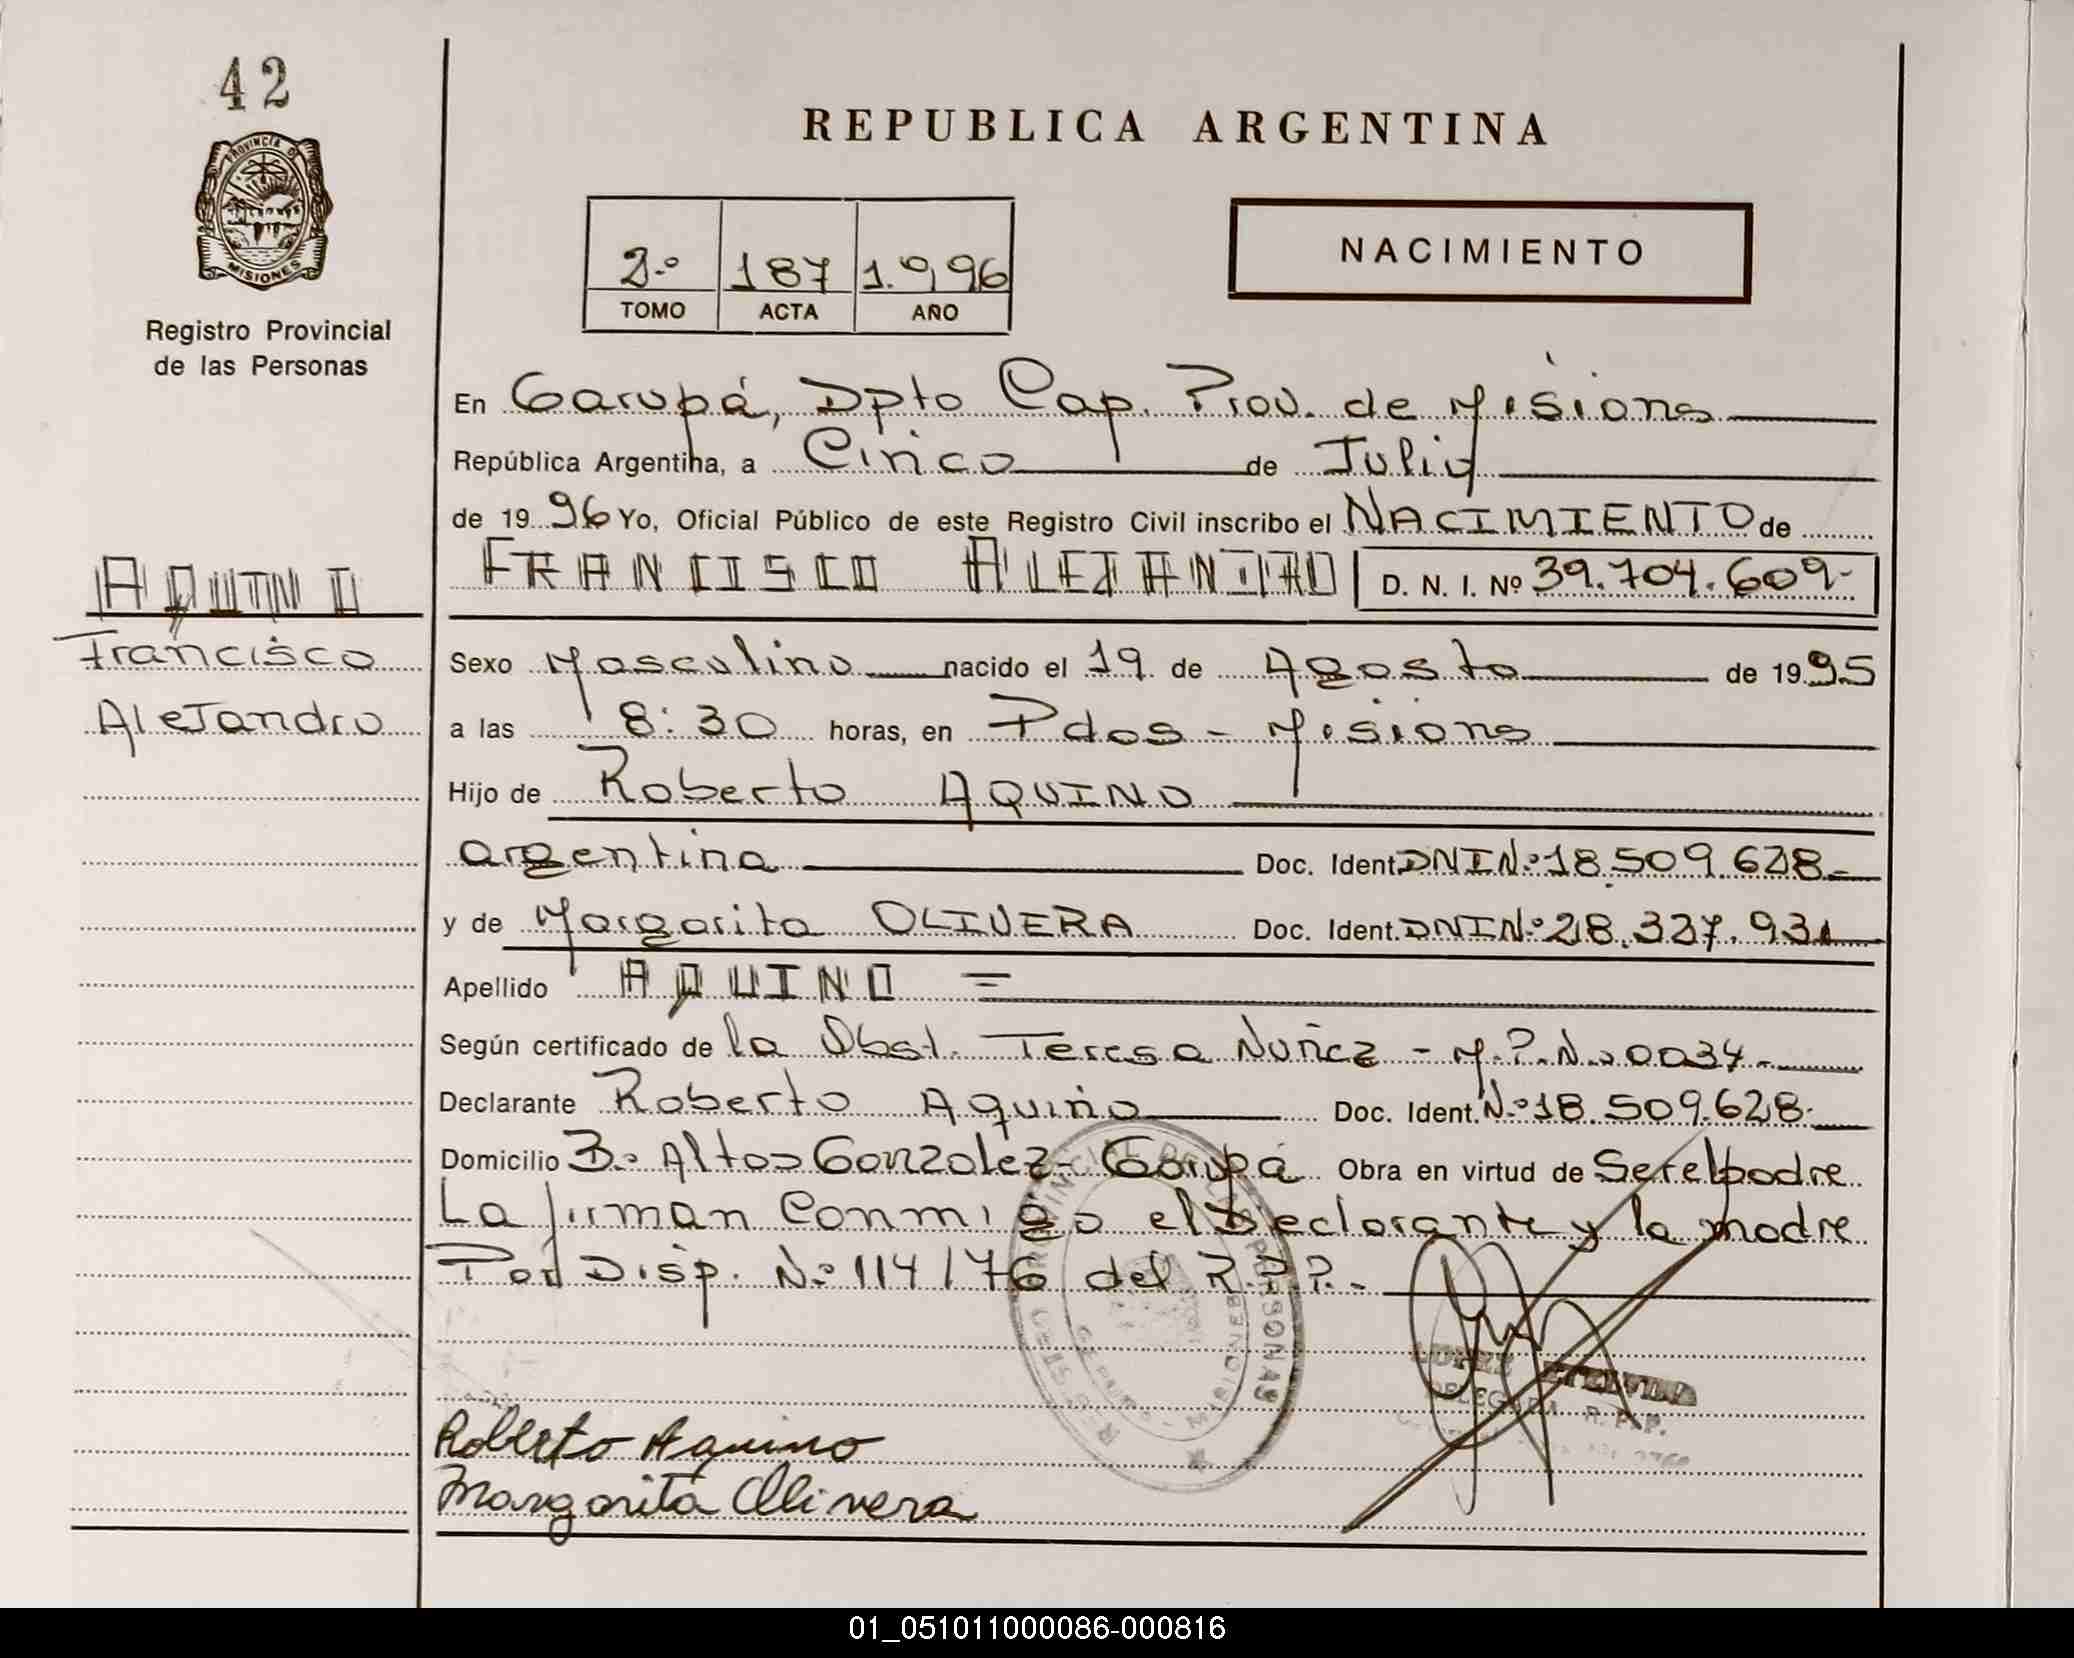 42
PROVINCIA DE
MISIONES
Registro Provincial
de las Personas
REPUBLICA ARGENTINA
2.º 187 1.996
TOMO ACTA AÑO
NACIMIENTO
En Garupá, Dpto Cap. Prov. de Misiones
República Argentina, a Cinco de Julio
de 1996 Yo, Oficial Público de este Registro Civil inscribo el NACIMIENTO de
FRANCISCO ALEJANDRO D. N. I. Nº 39.704.609-
AQUINO
Francisco
Alejandro
Sexo Masculino nacido el 19 de Agosto de 1995
a las 8:30 horas, en Pdas - Misiones
Hijo de Roberto AQUINO
argentina Doc. Ident. DNI N.º 18.509.628.-
y de Margarita OLIVERA Doc. Ident. DNI N.º 28.327.931
Apellido AQUINO =
Según certificado de la Obst. Teresa Nuñez - M.P.N.º 0034.-
Declarante Roberto Aquino Doc. Ident. N.º 18.509.628.
Domicilio B.º Altos Gonzalez - Garupá Obra en virtud de Ser el padre
La firman Conmigo el Declarante y la madre
Por Disp. N.º 114/76 del R.P.P.-
REGISTRO PROVINCIAL DE LAS PERSONAS
GARUPA - MISIONES
LOPEZ
DELEGADA R. P. P.
Roberto Aquino
Margarita Olivera
01_051011000086-000816